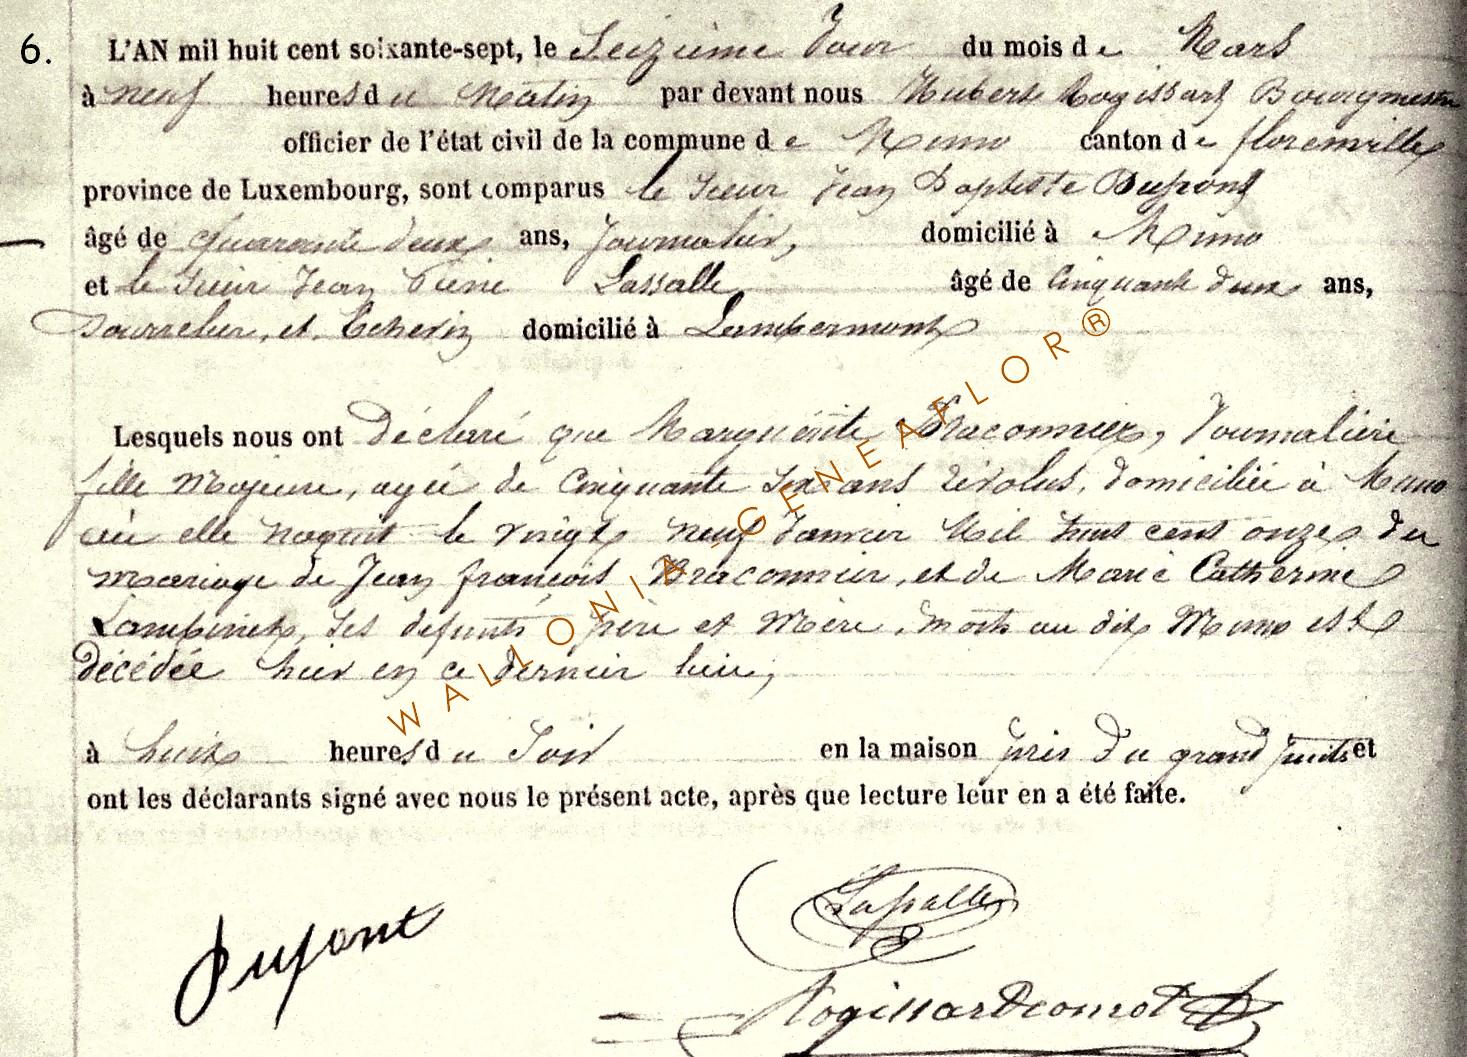 6.
L'AN mil huit cent soixante-sept, le Seizième Jour du mois de Mars
à neuf heures du Matin par devant nous Hubert Rogissart Bourgmestre
officier de l'état civil de la commune de Muno canton de florenville
province de Luxembourg, sont comparus le Sieur Jean Baptiste Dupont
âgé de quarante deux ans, Journalier, domicilié à Muno
et le Sieur Jean Pierre Lassalle âgé de Cinquante deux ans,
et Echevin domicilié à Lambermont
Lesquels nous ont Déclaré que Marguérite Braconnier, Journalière
fille Majeure, agée de Cinquante Six ans révolus, domiciliée à Muno
où elle naquit le vingt neuf Janvier Mil huit cent onze, du
mariage de Jean françois Braconnier, et de Marie Catherine
Lampinet, Ses défunts père et Mère, morts au dit Muno est
décédée hier en ce dernier lieu,
à huit heures du Soir en la maison près du grand puits et
ont les déclarants signé avec nous le présent acte, après que lecture leur en a été faite.
Dupont
Lassalle
WALLONIA-GENEAFLOR®